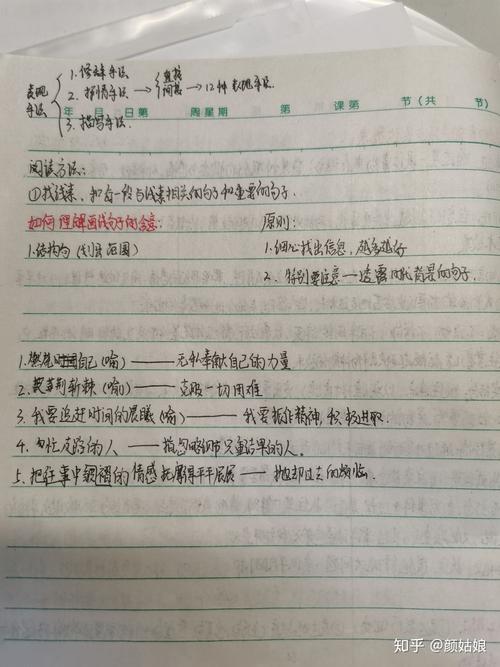 表现手法
1. 修辞手法
2. 抒情手法 → 直接 间接 → 12种表现手法.
3. 描写手法.
年 月 日第 周星期 第 课第 节(共 节)
阅读方法:
①找线索, 把每一段与线索相关的句子和重要的句子.
如何理解画线句子的含意: 原则:
1. 结构为 (划归范围) 1. 细心找出信息, 越多越好
2. 特别要注意一透露时代背景的句子.
1. 燃烧自己(喻) —— 无私奉献自己的力量
2. 披荆斩棘(喻) —— 克服一切困难
3. 我要追赶时间的晨曦(喻) —— 我要振作精神, 积极进取.
4. 匆忙走路的人 —— 指忽略细节只重结果的人.
5. 把往事中皱褶的情感抚摩得平平展展 —— 抛却过去的烦恼.
知乎 @颜姑娘